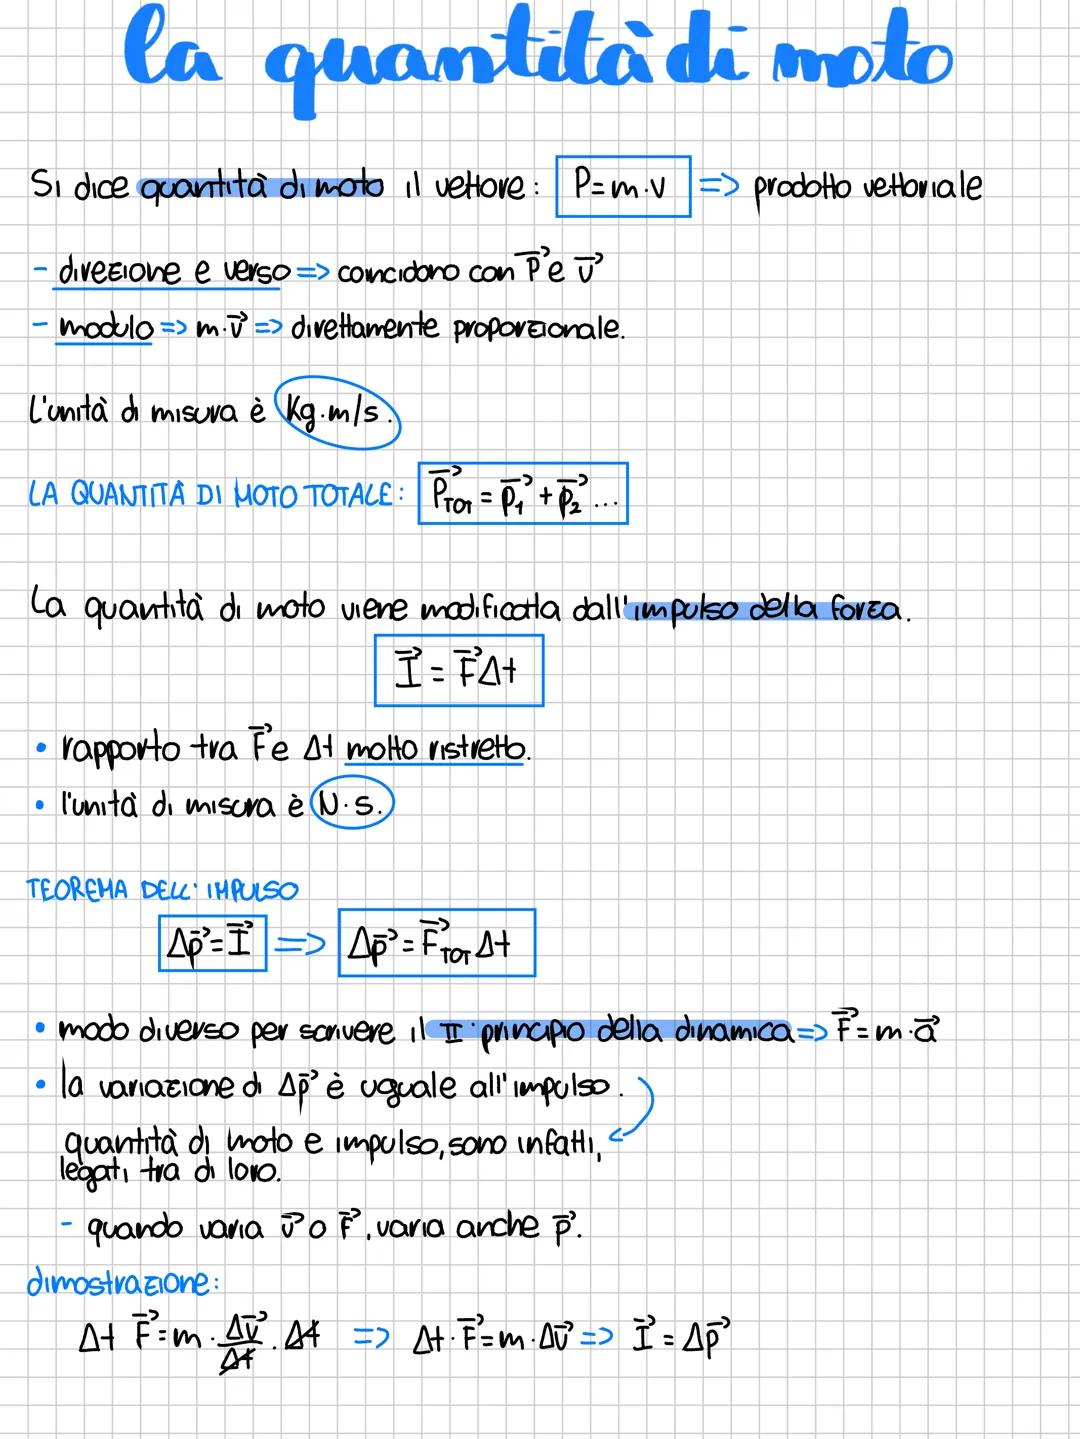 la quantità di moto
Si dice quantità di moto il vettore: P=m·v => prodotto vettoriale
- direzione e verso => coincidono con P⃗ e v⃗
- modulo => m·v⃗ => direttamente proporzionale.
L'unità di misura è Kg·m/s.
LA QUANTITÀ DI MOTO TOTALE: P⃗TOT = p⃗₁ + p⃗₂ ...
La quantità di moto viene modificata dall'impulso della forza.
I⃗ = F⃗Δt
• rapporto tra F⃗ e Δt molto ristretto.
• l'unità di misura è N·s.
TEOREMA DELL'IMPULSO
Δp⃗ = I⃗ => Δp⃗ = F⃗TOT Δt
• modo diverso per scrivere il II° principio della dinamica => F⃗ = m·a⃗
• la variazione di Δp⃗ è uguale all'impulso.
quantità di moto e impulso, sono infatti,
legati tra di loro.
- quando varia v⃗ o F⃗, varia anche p⃗.
dimostrazione:
Δt F⃗ = m · Δv⃗/Δt · Δt => Δt·F⃗ = m·Δv⃗ => I⃗ = Δp⃗